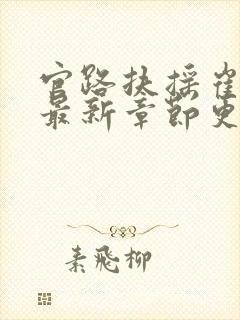 官路扶摇崔
最新章节更
素飛柳